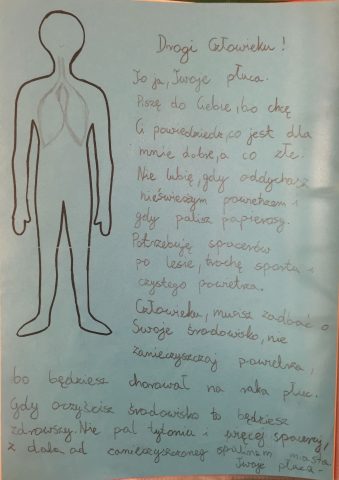 Drogi Człowieku!
To ja, Twoje płuca.
Piszę do Ciebie, bo chcę
Ci powiedzieć, co jest dla
mnie dobre, a co złe.
Nie lubię, gdy oddychasz
nieświeżym powietrzem i
gdy palisz papierosy.
Potrzebuję spacerów
po lesie, trochę sportu i
czystego powietrza.
Człowieku, musisz zadbać o
Swoje środowisko, nie
zanieczyszczaj powietrza,
bo będziesz chorował na raka płuc.
Gdy oczyścisz środowisko to będziesz
zdrowszy. Nie pal tytoniu i więcej spaceruj,
z dala od zanieczyszczonego spalinami miasta
Twoje płuca-